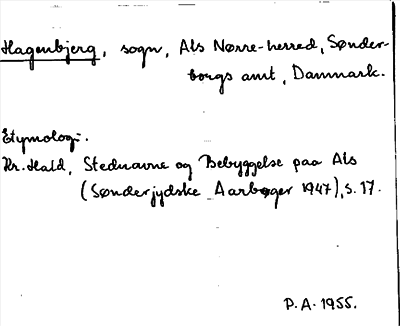 Hagenbjerg, sogn, Als Nørre-herred, Sønder-
borgs amt, Danmark.
Etymologi:.
Kr. Hald, Stednavne og Bebyggelse paa Als
(Sønderjydske Aarbøger 1947), s. 17.
P.A. 1955.